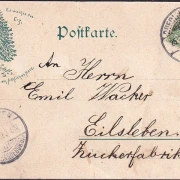 Postkarte.
An Herrn
Emil Wacker
Eilsleben.
Zuckerfabrik